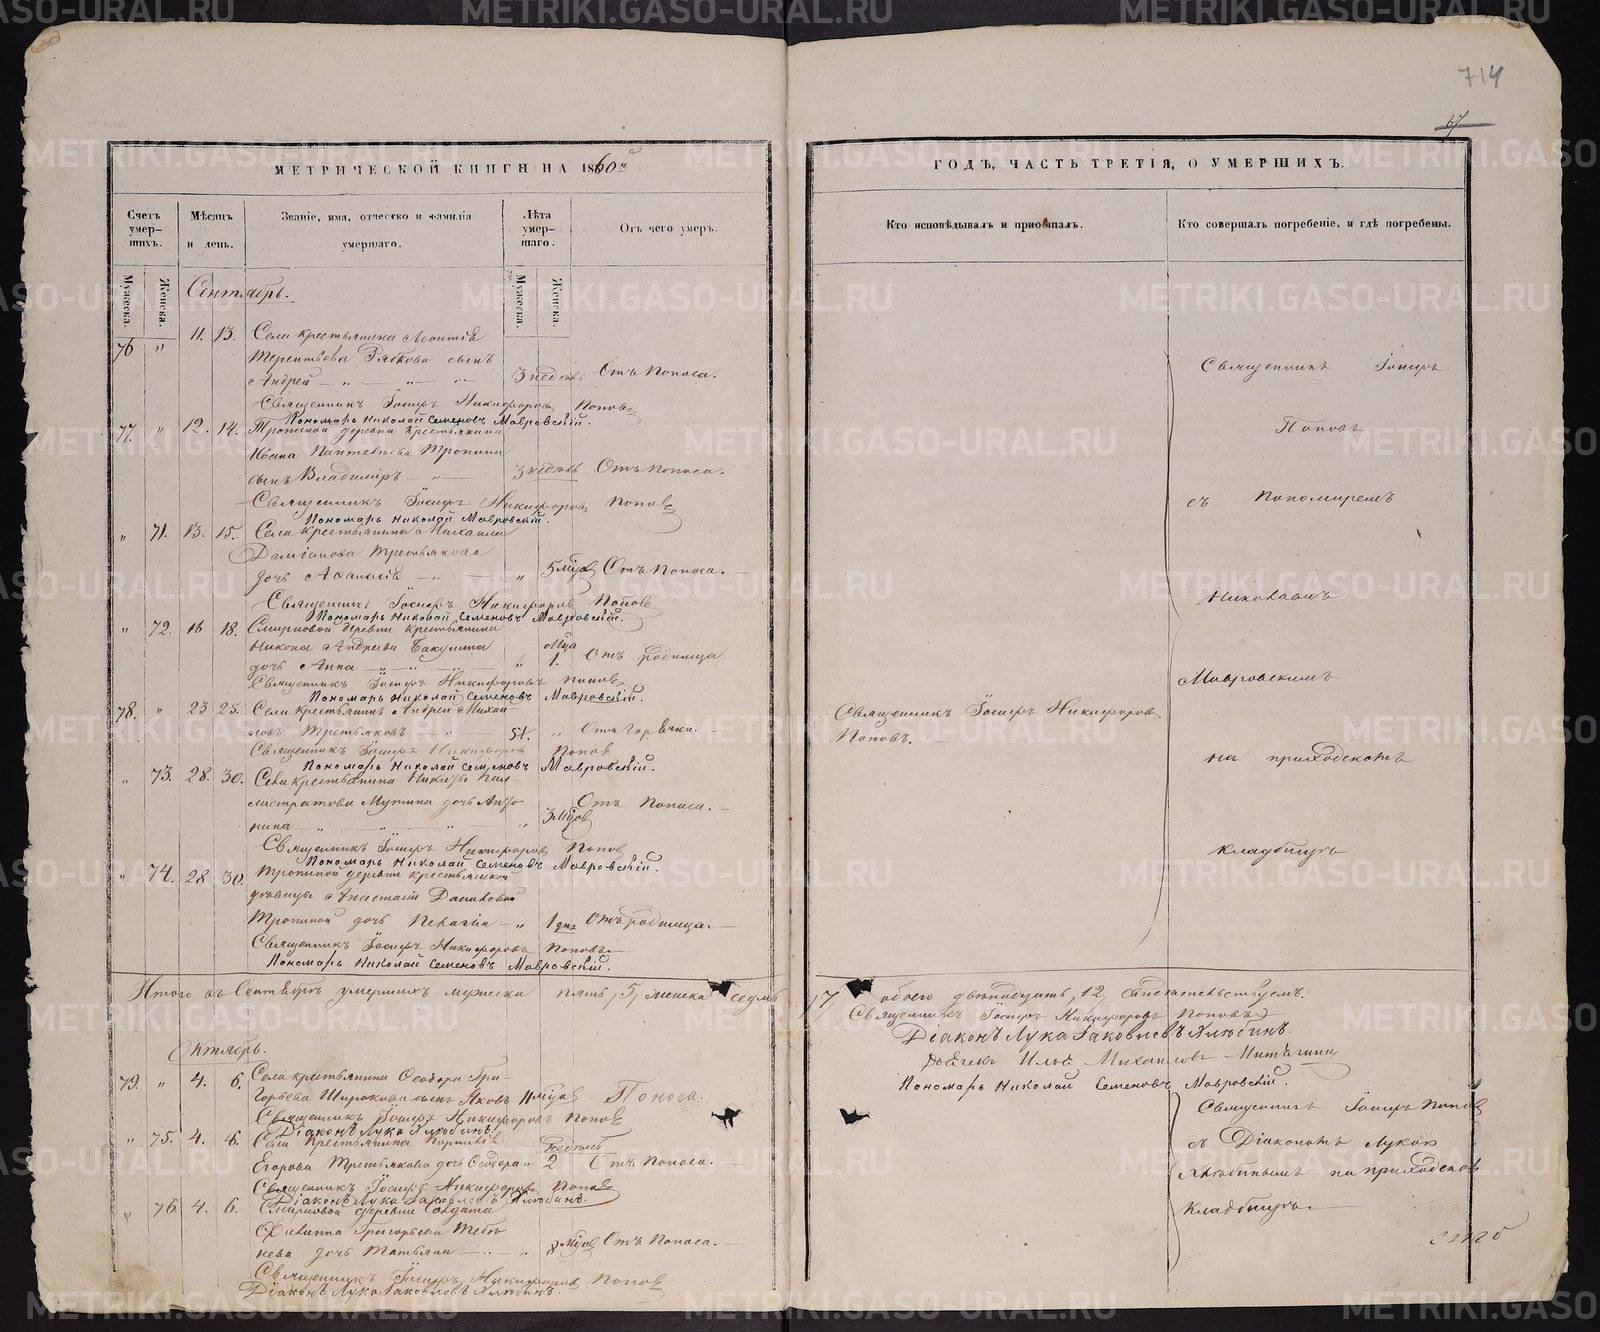 714
67
МЕТРИЧЕСКОЙ КНИГИ НА 1860й
ГОДЪ, ЧАСТЬ ТРЕТІЯ, О УМЕРШИХЪ.
Счетъ умер-шихъ.
Мѣсяцъ и день.
Званіе, имя, отчество и фамилія умершаго.
Лѣта умер-шаго.
Отъ чего умеръ.
Кто исповѣдывалъ и пріобщалъ.
Кто совершалъ погребеніе, и гдѣ погребены.
Мужеска.
Женска.
Мужеска.
Женска.
Сентябрь.
76 " 11. 13. Села крестьянина Леонтія
Терентьева сынъ
Андрей — " — " — " 3 недѣль Отъ поноса.
Священникъ Іосифъ Никифоровъ Поповъ
Пономарь Николай Семеновъ Мавровскій.
77. " 12. 14. Тропиной деревни крестьянина
Ивана Пантелѣева Тропина
сынъ Владиміръ — " — 3 недѣль Отъ поноса.
Священникъ Іосифъ Никифоровъ Поповъ
Пономарь Николай Мавровскій.
" 71. 13. 15. Села крестьянина Михаила
Даміанова Третьякова
дочь Афанасія — " — " 5 мѣсов Отъ поноса. —
Священникъ Іосифъ Никифоровъ Поповъ
Пономарь Николай Семеновъ Мавровскій.
" 72. 16 18. Смирновой деревни крестьянина
Никона Андреева Бакулина
дочь Анна — " — " — " — " мѣса 1. Отъ родимца
Священникъ Іосифъ Никифоровъ Поповъ
Пономарь Николай Семеновъ Мавровскій.
78. " 23 25. Села крестьянинъ Андрей Михай-
ловъ Третьяковъ — 51. " Отъ горячки. —
Священникъ Іосифъ Никифоровъ Поповъ
Пономарь Николай Семеновъ Мавровскій.
" 73. 28. 30. Села крестьянина Никиты Кал-
листратова Мутина дочь Анто-
нина — " — " — " — " 3 мѣсов Отъ поноса. —
Священникъ Іосифъ Никифоровъ Поповъ
Пономарь Николай Семеновъ Мавровскій.
" 74. 28 30. Тропиной деревни крестьянской
дѣвицы Анастасіи Даниловой
Тропиной дочь Пелагія — " 1 дня Отъ родимца. —
Священникъ Іосифъ Никифоровъ Поповъ
Пономарь Николай Семеновъ Мавровскій.
Священникъ Іосифъ Никифоровъ
Поповъ. —
Священникъ Іосифъ
Поповъ
съ Пономаремъ
Николаемъ
Мавровскимъ
на приходскомъ
кладбищѣ
Итого въ Сентябрѣ умершихъ мужеска пять, 5, женска седмь
, 7, обоего двѣнадцать, 12, свидѣтельствуемъ:
Священникъ Іосифъ Никифоровъ Поповъ
Діаконъ Лука Іаковлевъ Хлюбинъ.
Дьячекъ Илья Михаиловъ
Пономарь Николай Семеновъ Мавровскій.
Октябрь.
79. " 4. 6. Села крестьянина Ѳеодора Гри-
горьева Широкова сынъ Яковъ 11 мѣсов Поноса.
Священникъ Іосифъ Никифоровъ Поповъ
Діаконъ Лука Хлюбинъ.
" 75. 4. 6. Села крестьянина Корнилія
Егорова Третьякова дочь Ѳеодора " недѣль 2 Отъ поноса. —
Священникъ Іосифъ Никифоровъ Поповъ
Діаконъ Лука Іаковлевъ Хлюбинъ.
" 76. 4. 6. Смирновой деревни Солдата
Филиппа Григорьева
нева дочь Татьяна — " — " 8 мѣсов Отъ поноса. —
Священникъ Іосифъ Никифоровъ Поповъ
Діаконъ Лука Іаковлевъ Хлюбинъ.
Священникъ Іосифъ Поповъ
съ Діакономъ Лукою
Хлюбинымъ на приходскомъ
кладбищѣ. —
METRIKI.GASO-URAL.RU